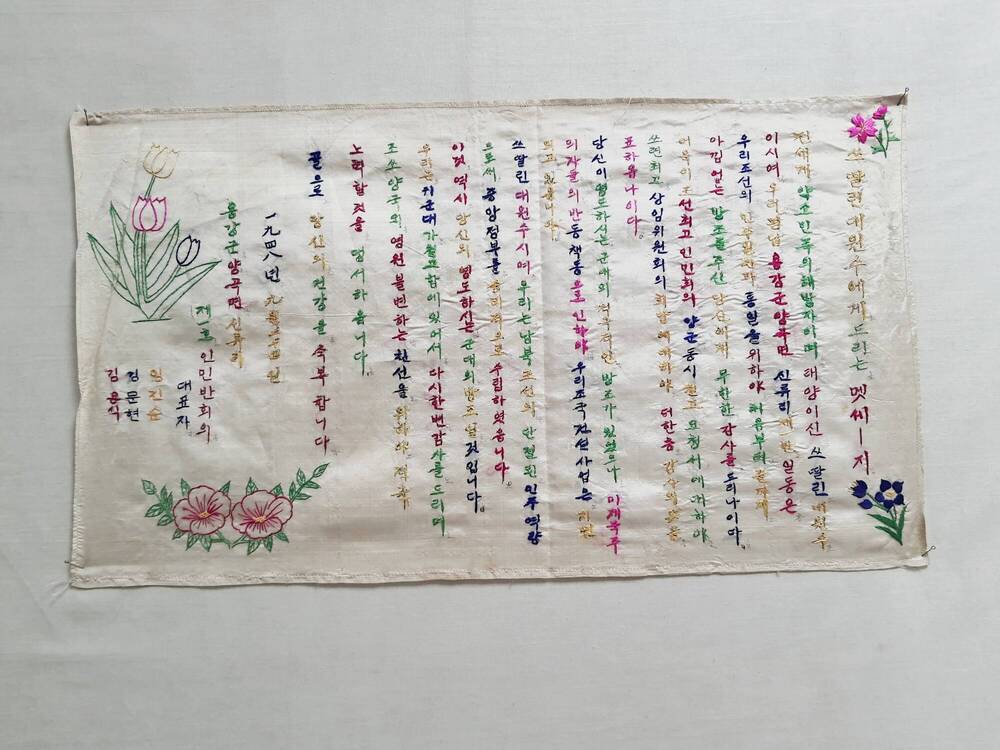 쓰딸린대원수에게드리는 멧씨ㅣ지
전세계 약소민족의해방자이며 태양이신 쓰딸린 대원수
이시여 우리 용강군양곡면 신류리 일동은
우리조선의 통일을위하야 처음부터
아낌없는 방조를주신 당신에게 무한한감사를드리나이다.
조선최고인민회의 양군동시 요청서에대하야
쏘련최고상임위원회의 회답에대하야 더한층
표하옵나이다
당신이영도하신군대의 방조가있었으나 미제국주
의자들의반동책동으로인하야 우리조국건설사업은
되고있읍니다
쓰딸린대원수시여 우리는남북조선의 단결된 인주역량
으로써 중앙정부를 수립하였읍니다
이것역시 당신의 영도하시는 군대의방조일것입니다.
우리는 귀군대가철거함에있어서 다시한번감사를드리며
조쏘양국의 영원불변하는친선을 위하야
노력할것을 맹서하옵니다.
끝으로 당신의건강을 축복합니다
一九四八년 九월
용강군양곡면신류리
제一호인민반회의
대표자
임진순
김문현
김용식